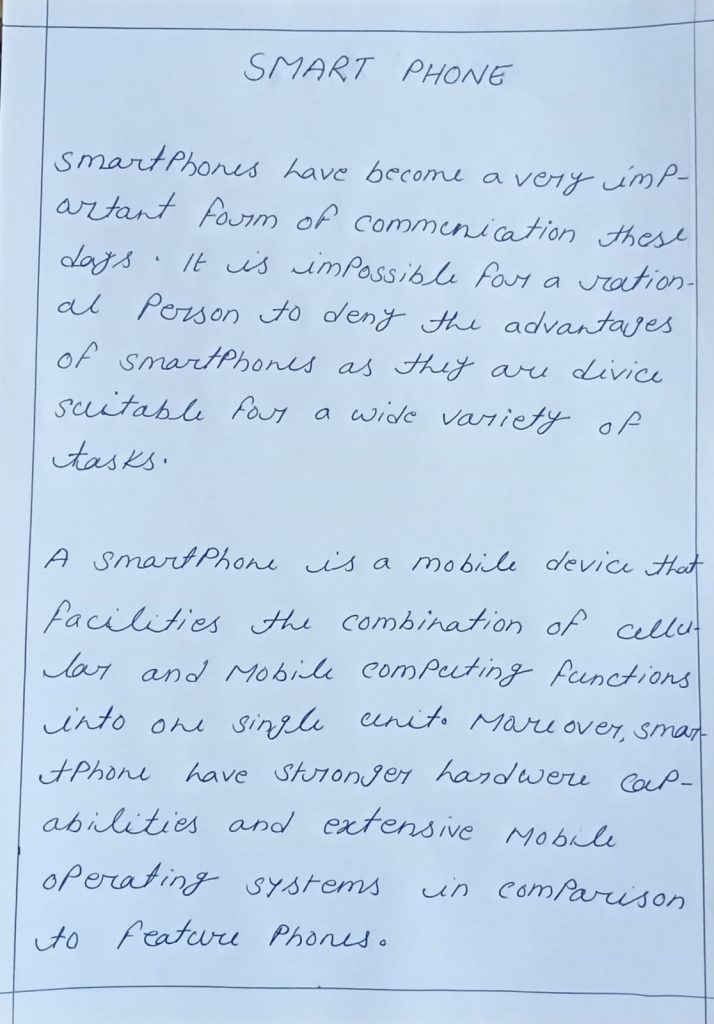 SMART PHONE
smartPhones have become a very imP-
ortant form of commcnication these
days. It is imPossible for a ration-
al Person to deny the advantages
of smartPhones as they are divice
suitable for a wide variety of
tasks.
A smartPhone is a mobile device that
facilities the combination of cellu-
lar and Mobile comPuting functions
into one single unit. Moreover, smar-
tPhone have stronger hardwere caP-
abilities and extensive Mobile
oPerating systems in comParison
to feature Phones.